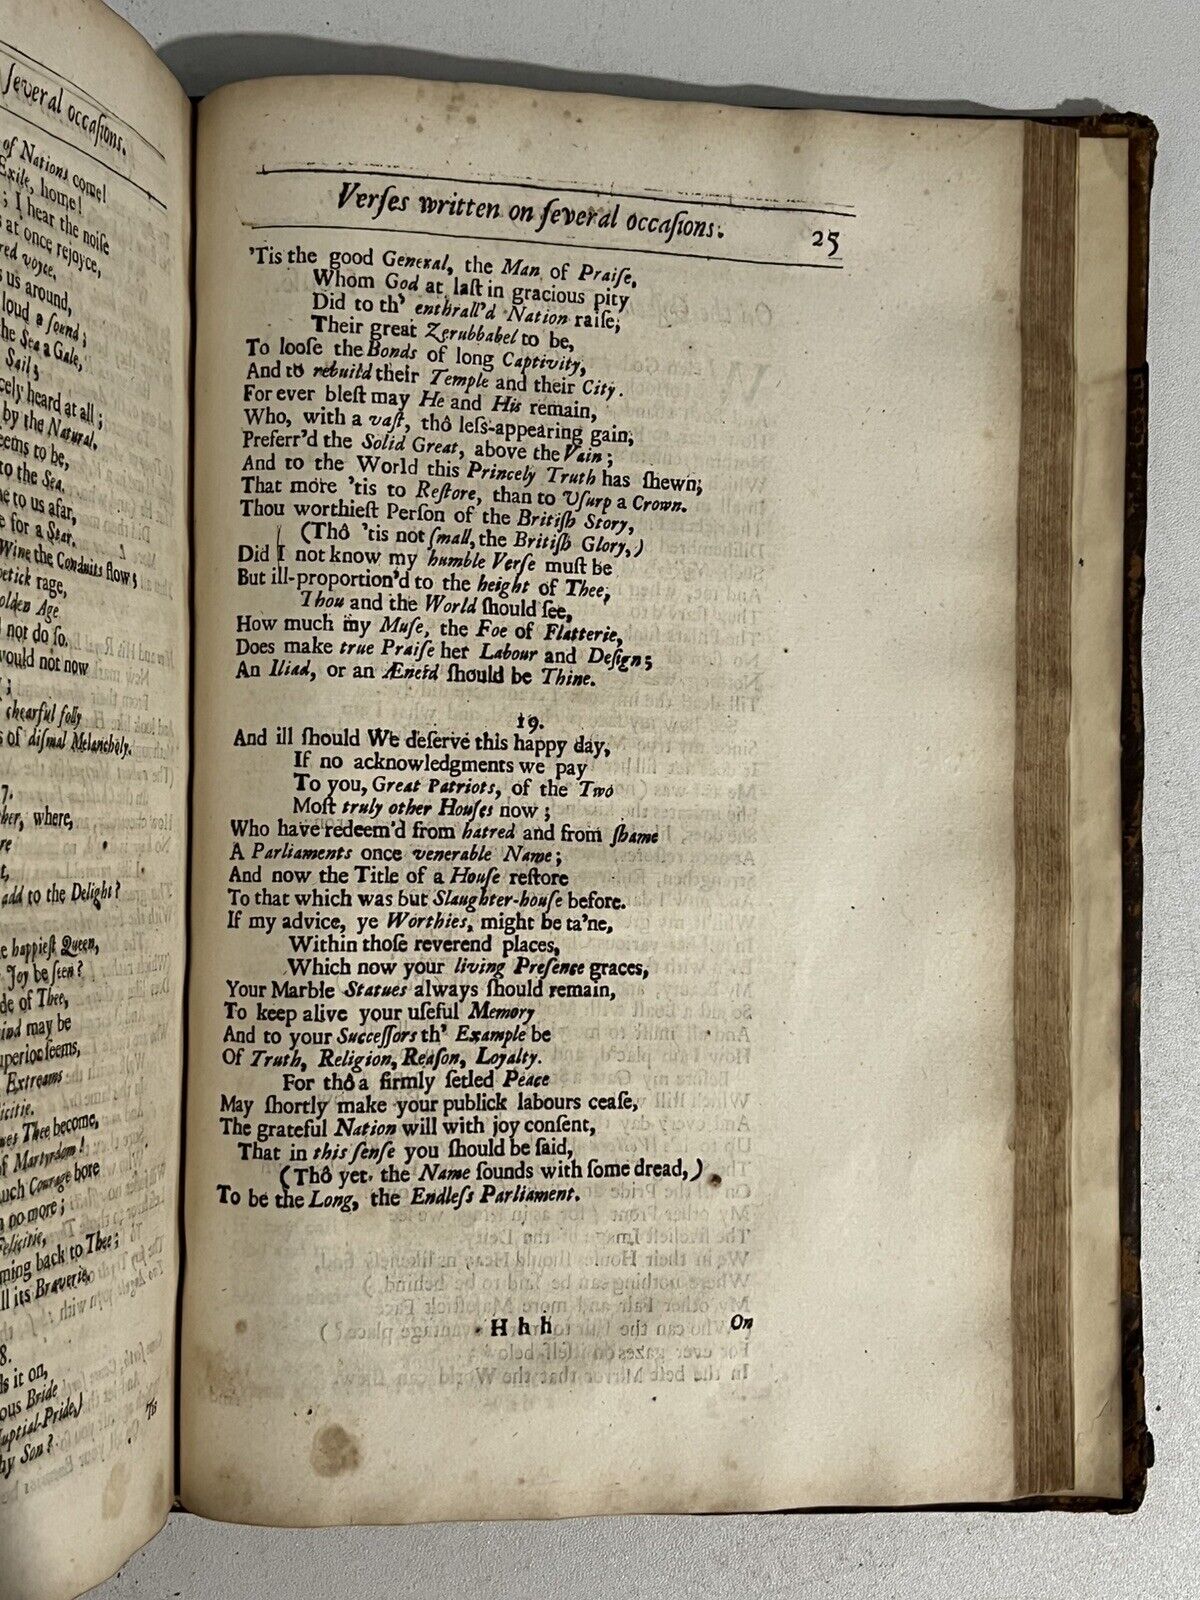 several occasions.
of Nations come!
Exile, home!
; I hear the noise
at once rejoyce,
red voyce.
us around,
loud a sound;
the Sea a Gale,
Sail;
cely heard at all;
by the Natural.
eems to be,
to the Sea.
me to us afar,
e for a Star.
Wine the Conduits flow;
etick rage,
olden Age
not do so.
would not now
;
chearful folly
s of dismal Melancholy.
7.
ber, where,
re
t,
add to the Delight?
e happiest Queen,
Joy be seen?
de of Thee,
ind may be
uperior seems,
Extreams
icitie.
wes Thee become,
of Martyrdom!
uch Courage bore
n no more;
Felicitie,
ming back to Thee;
ll its Braverie.
8.
ds it on,
ous Bride
uptial-Pride,)
hy Son?
Verſes written on ſeveral occaſions. 25
'Tis the good General, the Man of Praiſe,
Whom God at laſt in gracious pity
Did to th' enthrall'd Nation raiſe;
Their great Zerubbabel to be,
To looſe the Bonds of long Captivity,
And to rebuild their Temple and their City.
For ever bleſt may He and His remain,
Who, with a vaſt, thô leſs-appearing gain;
Preferr'd the Solid Great, above the Vain;
And to the World this Princely Truth has ſhewn;
That more 'tis to Reſtore, than to Uſurp a Crown.
Thou worthieſt Perſon of the Britiſh Story,
(Thô 'tis not ſmall, the Britiſh Glory,)
Did I not know my humble Verſe muſt be
But ill-proportion'd to the height of Thee;
Thou and the World ſhould ſee,
How much my Muſe, the Foe of Flatterie,
Does make true Praiſe her Labour and Deſign;
An Iliad, or an Æneid ſhould be Thine.
19.
And ill ſhould We deſerve this happy day,
If no acknowledgments we pay
To you, Great Patriots, of the Two
Moſt truly other Houſes now;
Who have redeem'd from hatred and from ſhame
A Parliaments once venerable Name;
And now the Title of a Houſe reſtore
To that which was but Slaughter-houſe before.
If my advice, ye Worthies, might be ta'ne,
Within thoſe reverend places,
Which now your living Preſence graces,
Your Marble Statues always ſhould remain,
To keep alive your uſeful Memory
And to your Succeſſors th' Example be
Of Truth, Religion, Reaſon, Loyalty.
For thô a firmly ſetled Peace
May ſhortly make your publick labours ceaſe,
The grateful Nation will with joy conſent,
That in this ſenſe you ſhould be ſaid,
(Thô yet the Name ſounds with ſome dread,)
To be the Long, the Endleſs Parliament.
Hhh On